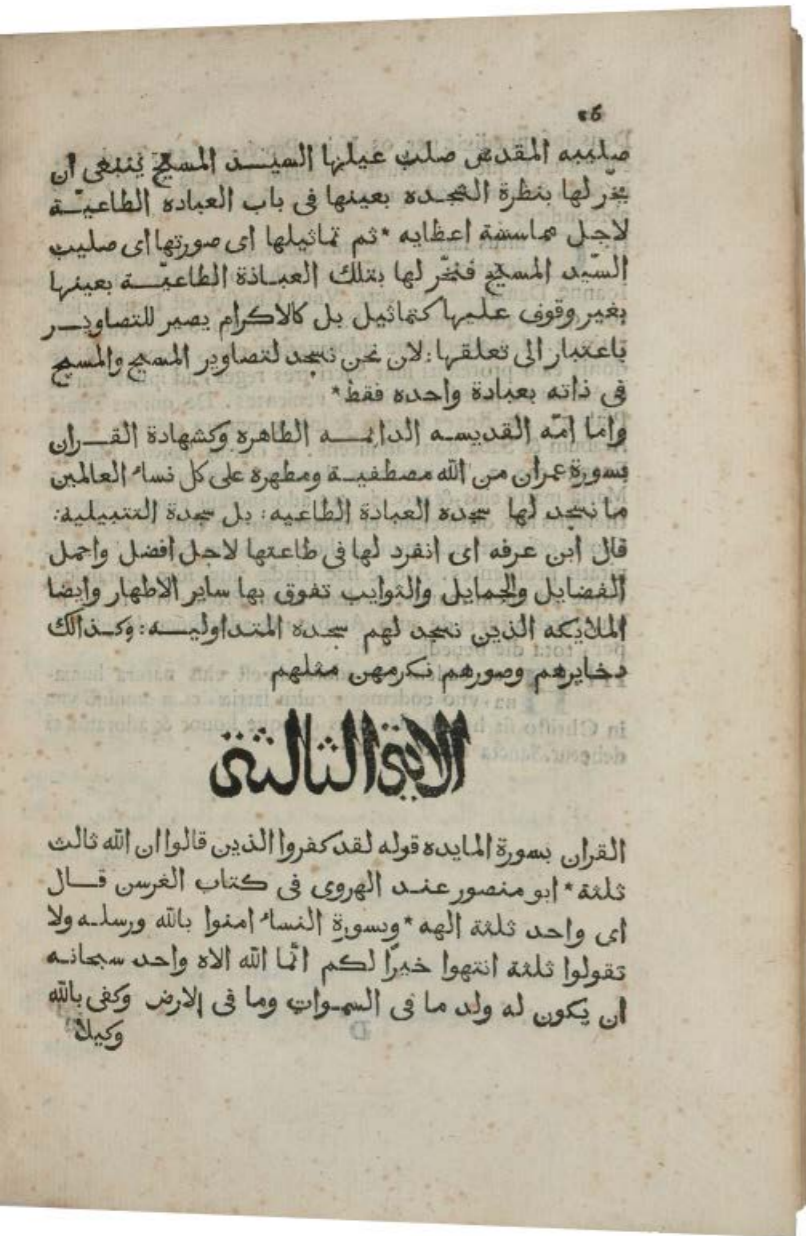 26
صليبه المقدس صلب عيلها السيد المسيح ينبغى ان
يخّر لها بنظرة السجده بعينها فى باب العباده الطاعيّة
لاجل مماسسة اعظايه * ثم تماثيلها اى صورتها اى صليب
السّيد المسيح فنخّر لها بتلك العباذة الطاعيّة بعينها
بغير وقوف عليها كتماثيل بل كالاكرام يصير للتصاوير
باعتبار الى تعلقها : لان نحن نسجد لتصاوير المسيح والمسيح
فى ذاته بعبادة واحده فقط *
واما امّه القديسه الدايمه الطاهره وكشهادة القران
بسورة عمران من الله مصطفية ومطهره على كل نساء العالمين
ما نسجد لها سجده العبادة الطاعيه : بل سجدة التتبيلية :
قال ابن عرفه اى انفرد لها فى طاعتها لاجل افضل واجمل
الفضايل والجمايل والثوايب تفوق بها ساير الاطهار وايضا
الملايكه الذين نسجد لهم سجده المتداوليه : وكذالك
دخايرهم وصورهم نكرمهن مثلهم
الايتى الثالثتى
القران بسورة المايده قوله لقد كفروا الذين قالوا ان الله ثالث
ثلثة * ابو منصور عند الهروى فى كتاب الغرسن قال
اى واحد ثلثة الهه * وبسورة النساء امنوا بالله ورسله ولا
تقولوا ثلثة انتهوا خيرًا لكم انّما الله الاه واحد سبحانه
ان يكون له ولد ما فى السموات وما فى الارض وكفى بالله
وكيلاً